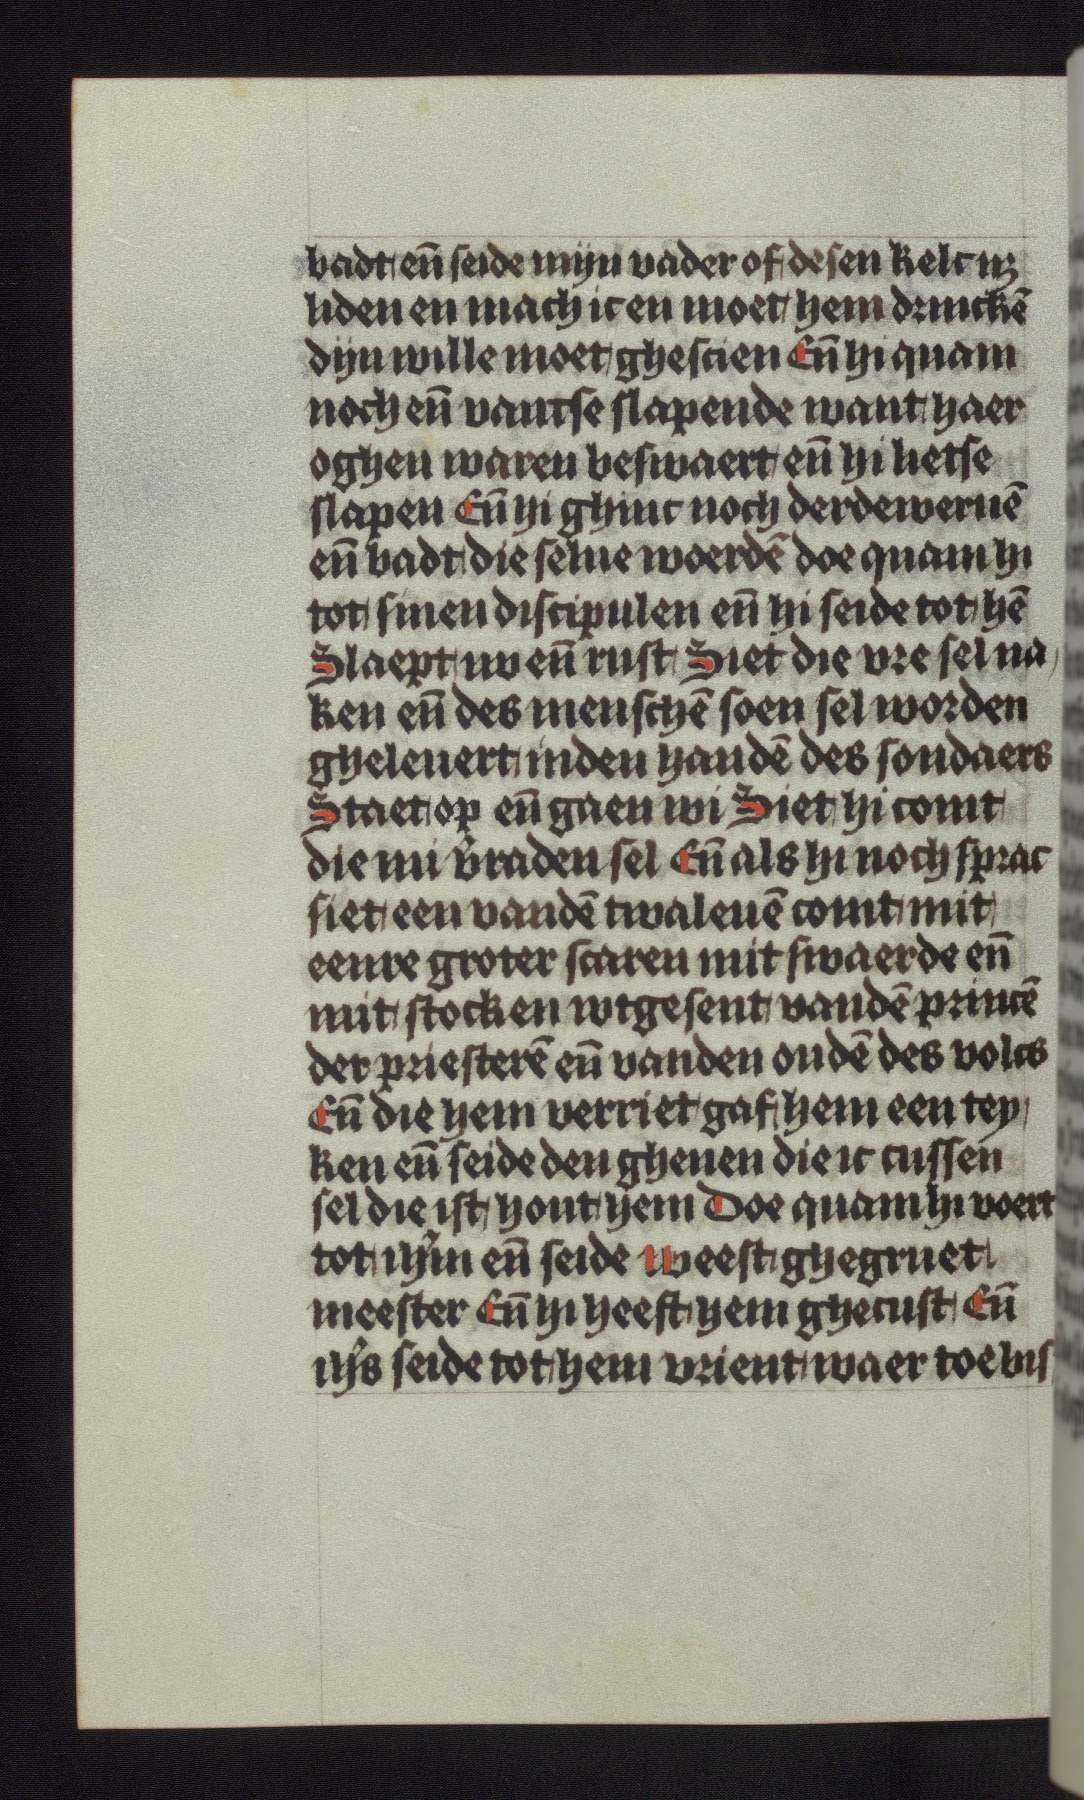 badt en̄ seide mijn vader of desen kelc nʒ
liden en mach ic en moet hem drinckē
dijn wille moet ghescien En̄ hi quam
noch en̄ vantse slapende want haer
oghen waren beswaert en̄ hi lietse
slapen En̄ hi ghinc noch derdeweruē
en̄ badt die selue woerdē doe quam hi
tot sinen discipulen en̄ hi seide tot hē
Slaept nv en̄ rust Siet die vre sel na
ken en̄ des menschē soen sel worden
gheleuert inden handē des sondaers
Staet op en̄ gaen wi Siet hi comt
die mi v̄raden sel En̄ als hi noch sprac
siet een vandē twaleuē comt mit
eenre groter scaren mit swaerde en̄
mit stocken wtgesent vandē princē
der priesterē en̄ vanden oudē des volcs
En̄ die hem verriet gaf hem een tey
ken en̄ seide den ghenen die ic cussen
sel die ist hout hem Doe quam hi voert
tot ih̄m en̄ seide weest ghegruet
meester En̄ hi heeft hem ghecust En̄
ih̄s seide tot hem vrient waer toe bis